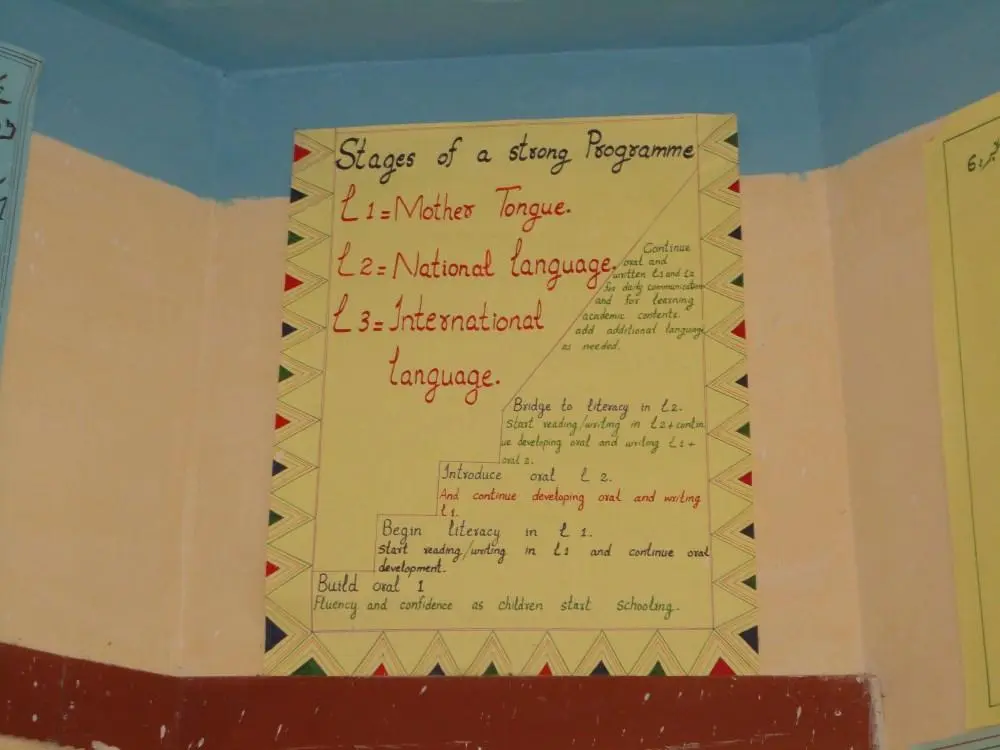 Stages of a strong Programme
L1=Mother Tongue.
L2=National language.
L3=International
language.
Continue
oral and
written L1 and L2
for daily communication
and for learning
academic contents.
add additional language
as needed.
Bridge to literacy in L2.
start reading/writing in L2+contin
ue developing oral and writing L1+
oral 2.
Introduce oral L 2.
And continue developing oral and writing
L1.
Begin literacy in L 1.
start reading/writing in L1 and continue oral
development.
Build oral 1
Fluency and confidence as children start schooling.